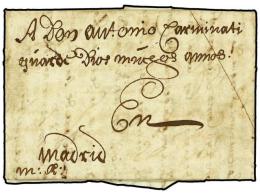 A Don Antonio Carminati
guarde Dios muchos años
En
Madrid